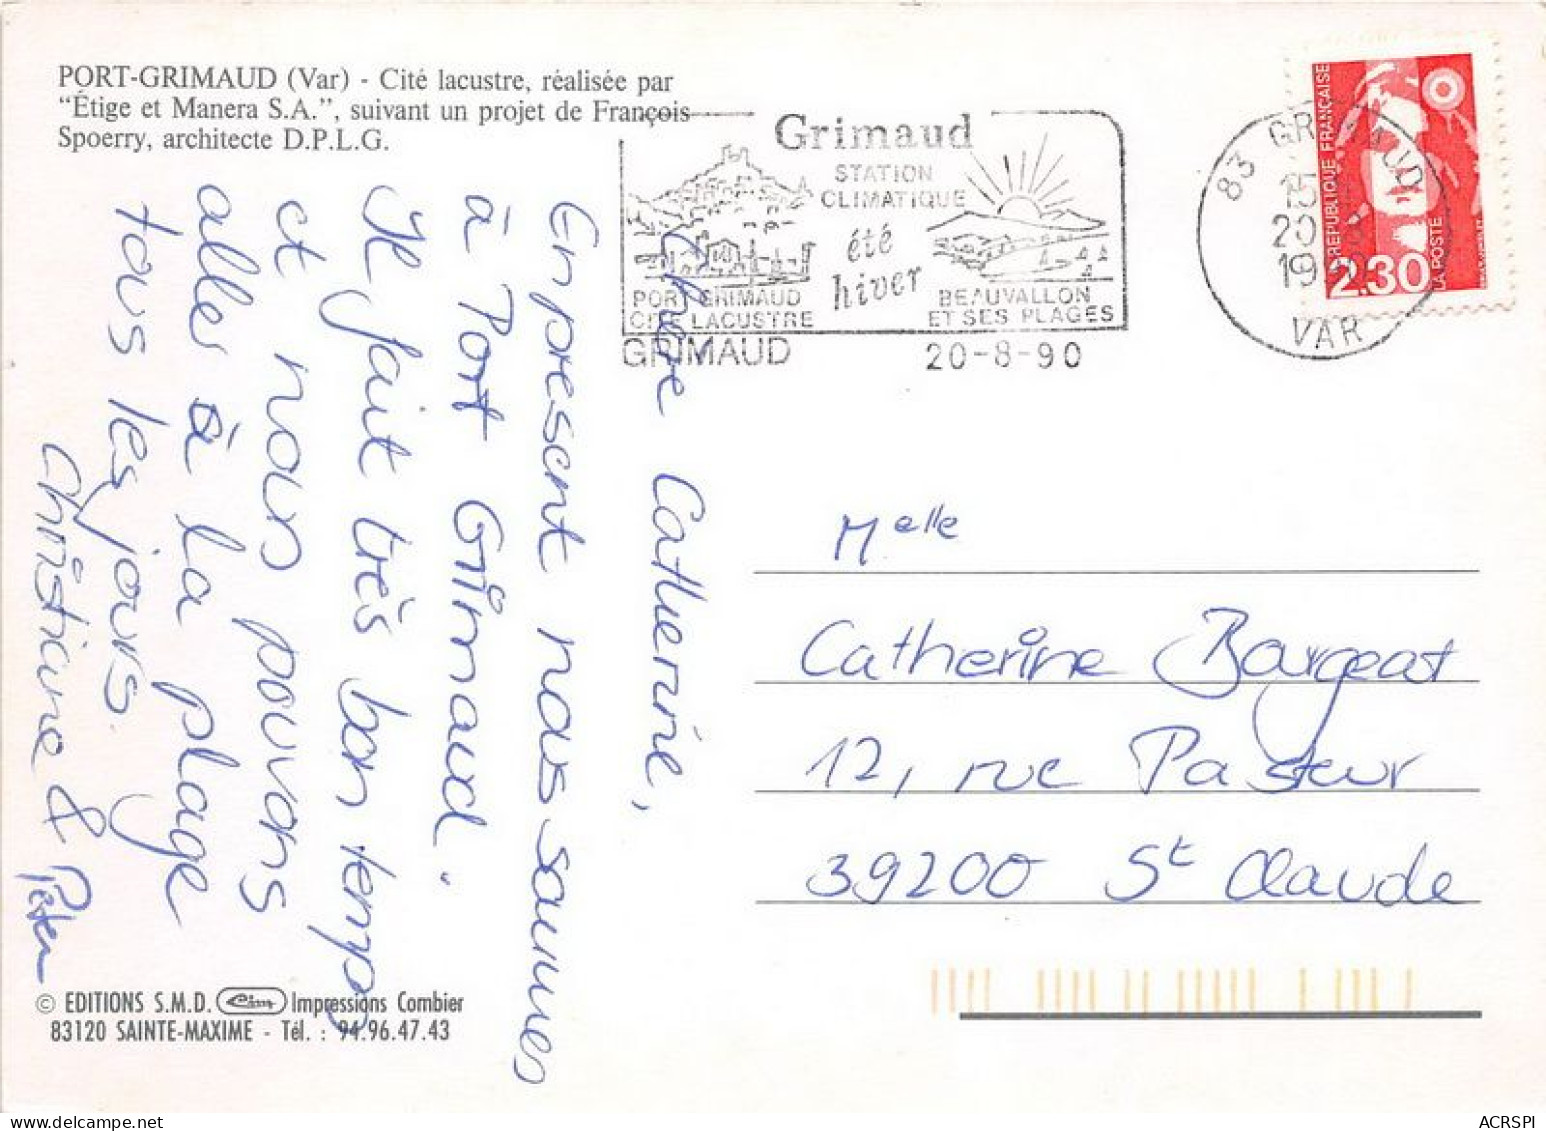 PORT-GRIMAUD (Var) - Cité lacustre, réalisée par
"Étige et Manera S.A.", suivant un projet de François
Spoerry, architecte D.P.L.G.
Grimaud
STATION
CLIMATIQUE
été
hiver
PORT GRIMAUD
CITE LACUSTRE
BEAUVALLON
ET SES PLAGES
GRIMAUD
20-8-90
83 GRIMAUD
15
20
19
VAR
RÉPUBLIQUE FRANÇAISE
2.30
LA POSTE
Chère Catherine,
En present nous sommes
à Port Grimaud.
Il fait très bon temps
et nous pouvons
alles à la plage
tous les jours.
Christiane & Peter
Melle
Catherine Bourgeat
12, rue Pasteur
39200 St Claude
© EDITIONS S.M.D. Cim Impressions Combier
83120 SAINTE-MAXIME - Tél. : 94.96.47.43
ACRSPI